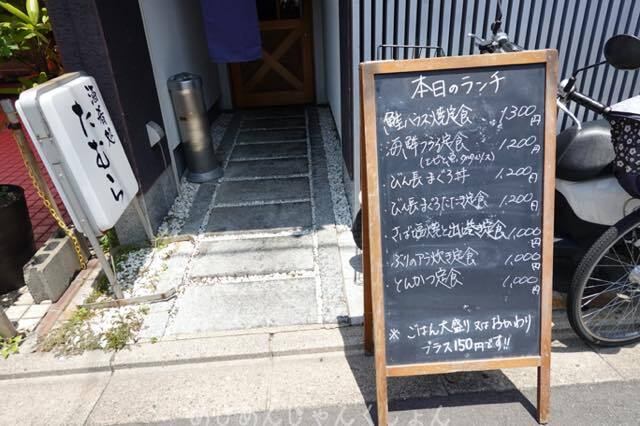 酒肴処
たむら
本日のランチ
鮭ハラス焼定食 1300円
海鮮フライ定食 1,200円
(エビと魚、タルタルソース)
びん長まぐろ丼 1,200円
びん長まぐろたたき定食 1,200円
さば塩焼と出し巻き定食 1,000円
ぶりのアラ炊き定食 1,000円
とんかつ定食 1,000円
※ごはん大盛り又はおかわり
プラス150円です!!